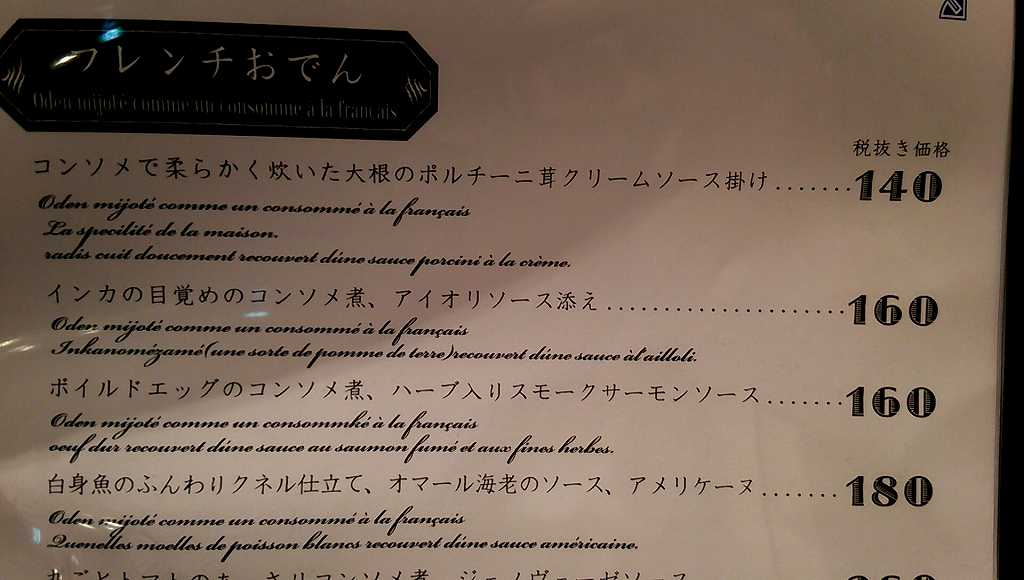 フレンチおでん
Oden mijoté comme un consomme a la français
税抜き価格
コンソメで柔らかく炊いた大根のポルチーニ茸クリームソース掛け.......140
Oden mijoté comme un consommé à la français
La specilité de la maison.
radis cuit doucement recouvert dúne sauce porcini à la crème.
インカの目覚めのコンソメ煮、アイオリソース添え......................160
Oden mijoté comme un consommé à la français
Inkanomézamé(une sorte de pomme de terre)recouvert dúne sauce àl'ailloli.
ボイルドエッグのコンソメ煮、ハーブ入りスモークサーモンソース........160
Oden mijoté comme un consommké à la français
oeuf dur recouvert dúne sauce au saumon fumé et aux fines herbes.
白身魚のふんわりクネル仕立て、オマール海老のソース、アメリケーヌ.......180
Oden mijoté comme un consommé à la français
Quenelles moelles de poisson blancs recouvert dúne sauce américaine.